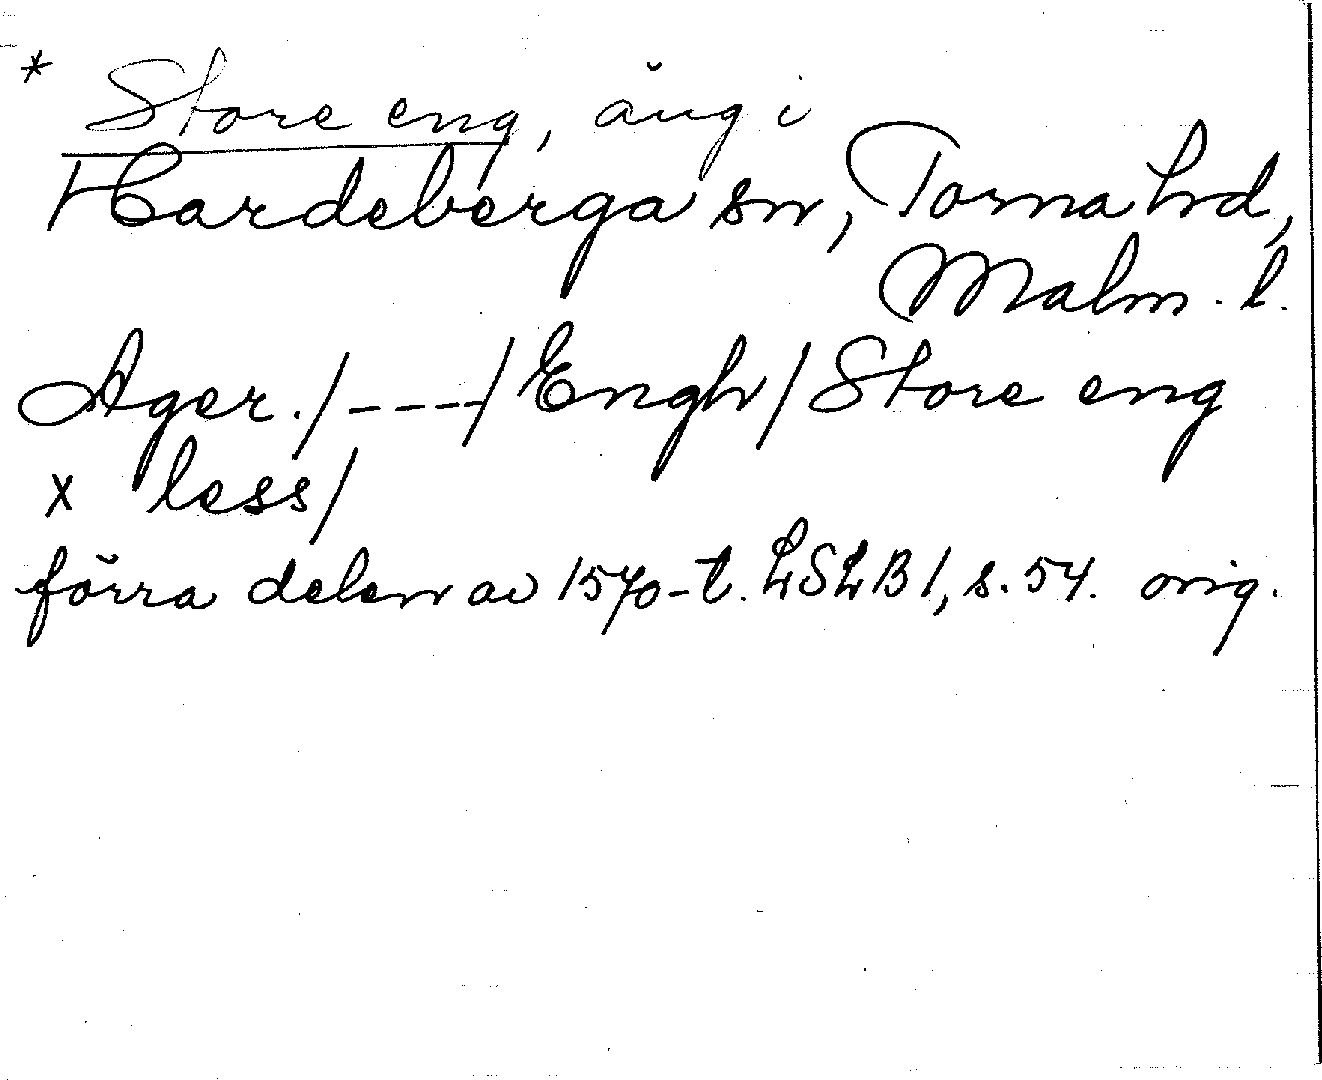 * Store eng, äng i
Hardeberga sn, Torna hd,
Malm. l.
Ager. / - - - - / Engh / Store eng
x less /
förra delen av 1570-t. LSLB 1, s. 54. orig.